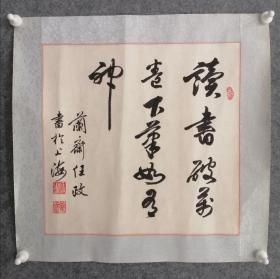 讀書破萬
卷下筆如有
神
蘭齋任政
書於上海